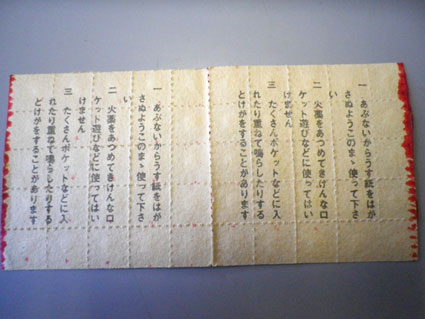 一 あぶないからうす紙をはが
さぬようこのまゝ使って下さ
い
二 火薬をあつめてきけんな口
ケット遊びなどに使ってはい
けません
三 たくさんポケットなどに入
れたり重ねて鳴らしたりする
とけがをすることがあります
一 あぶないからうす紙をはが
さぬようこのまゝ使って下さ
い
二 火薬をあつめてきけんな口
ケット遊びなどに使ってはい
けません
三 たくさんポケットなどに入
れたり重ねて鳴らしたりする
とけがをすることがあります